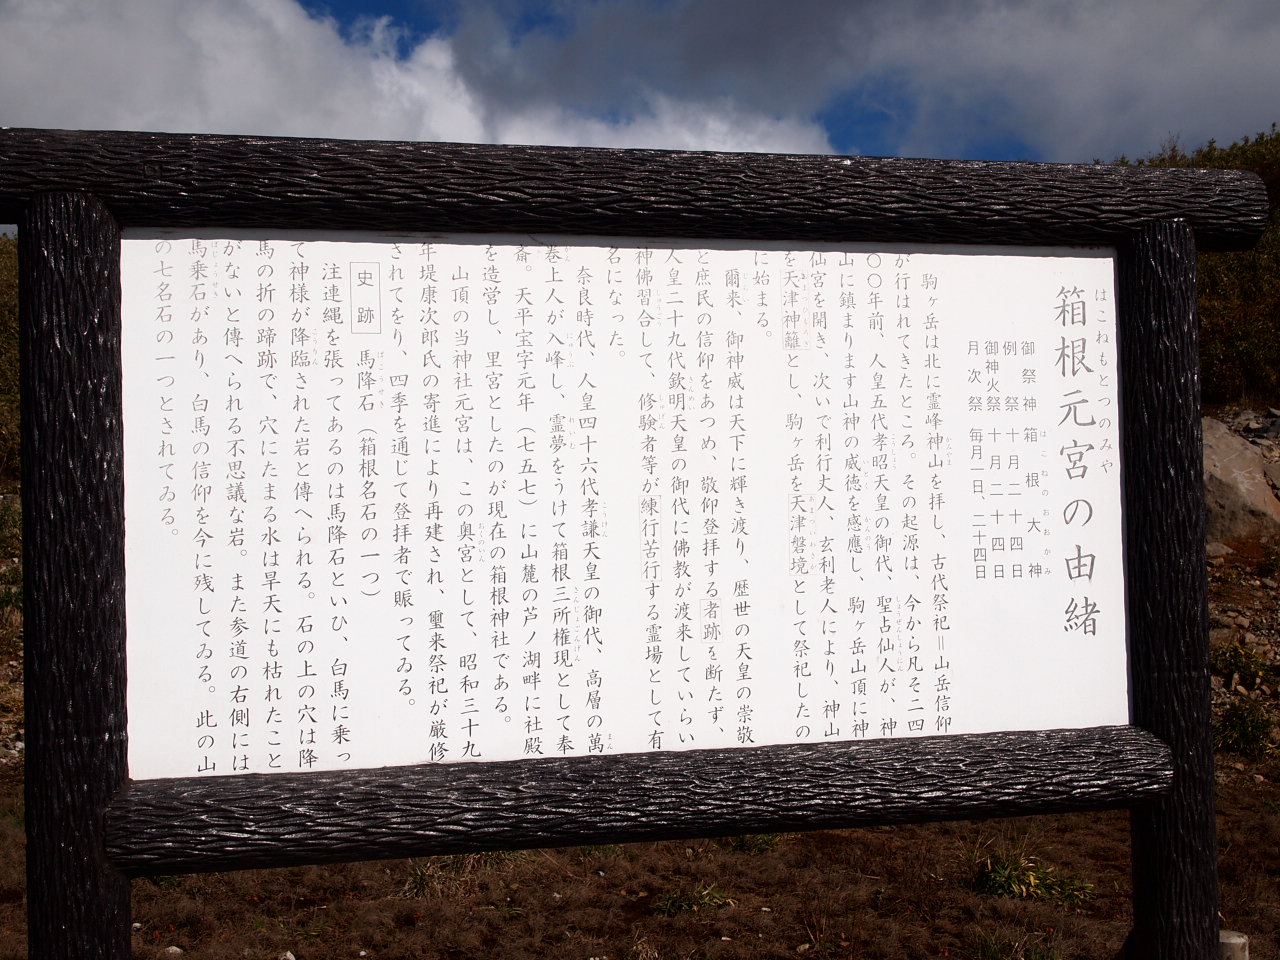 箱根元宮の由緒
はこねもとつのみや
御祭神 箱根大神
はこねのおおかみ
例祭 十月二十四日
御神火祭 十月二十四日
月次祭 毎月一日、二十四日
駒ヶ岳は北に霊峰神山を拝し、古代祭祀＝山岳信仰
が行はれてきたところ。その起源は、今から凡そ二四
〇〇年前、人皇五代孝昭天皇の御代、聖占仙人が、神
山に鎮まります山神の威徳を感應し、駒ヶ岳山頂に神
仙宮を開き、次いで利行丈人、玄利老人により、神山
を天津神籬とし、駒ヶ岳を天津磐境として祭祀したの
に始まる。
爾来、御神威は天下に輝き渡り、歴世の天皇の崇敬
と庶民の信仰をあつめ、敬仰登拝する者跡を断たず、
人皇二十九代欽明天皇の御代に佛教が渡来していらい
神佛習合して、修験者等が練行苦行する霊場として有
名になった。
奈良時代、人皇四十六代孝謙天皇の御代、高層の萬
巻上人が入峰し、霊夢をうけて箱根三所権現として奉
斎。天平宝字元年（七五七）に山麓の芦ノ湖畔に社殿
を造営し、里宮としたのが現在の箱根神社である。
山頂の当神社元宮は、この奥宮として、昭和三十九
年堤康次郎氏の寄進により再建され、爾来祭祀が厳修
されてをり、四季を通じて登拝者で賑ってゐる。
史跡 馬降石（箱根名石の一つ）
ばこうせき
注連縄を張ってあるのは馬降石といひ、白馬に乗っ
て神様が降臨された岩と傳へられる。石の上の穴は降
馬の折の蹄跡で、穴にたまる水は旱天にも枯れたこと
がないと傳へられる不思議な岩。また参道の右側には
馬乗石があり、白馬の信仰を今に残してゐる。此の山
の七名石の一つとされてゐる。